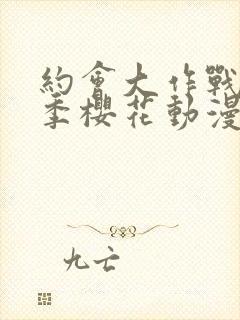 約會大作戰
季櫻花動漫
九亡